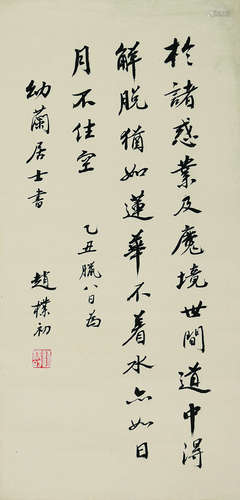 於諸惑業及魔境世間道中得
解脱猶如蓮華不着水亦如日
月不住空
乙丑臘八日為
幼蘭居士書
趙樸初